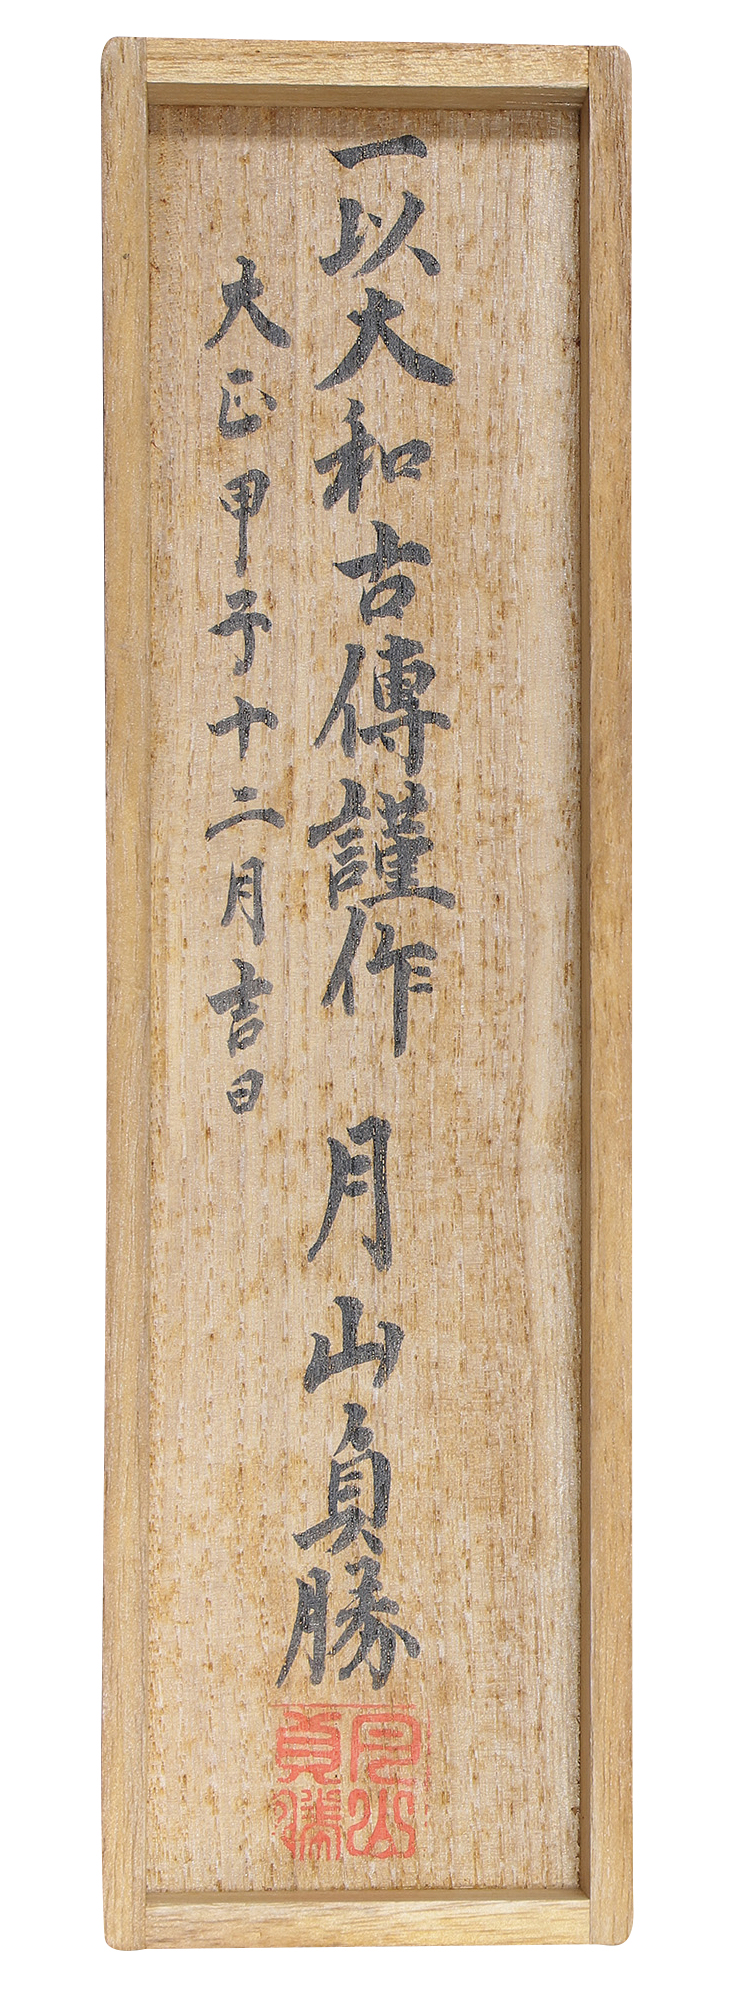 一以大和古傳謹作 月山貞勝
大正甲子十二月吉日
月山
貞勝